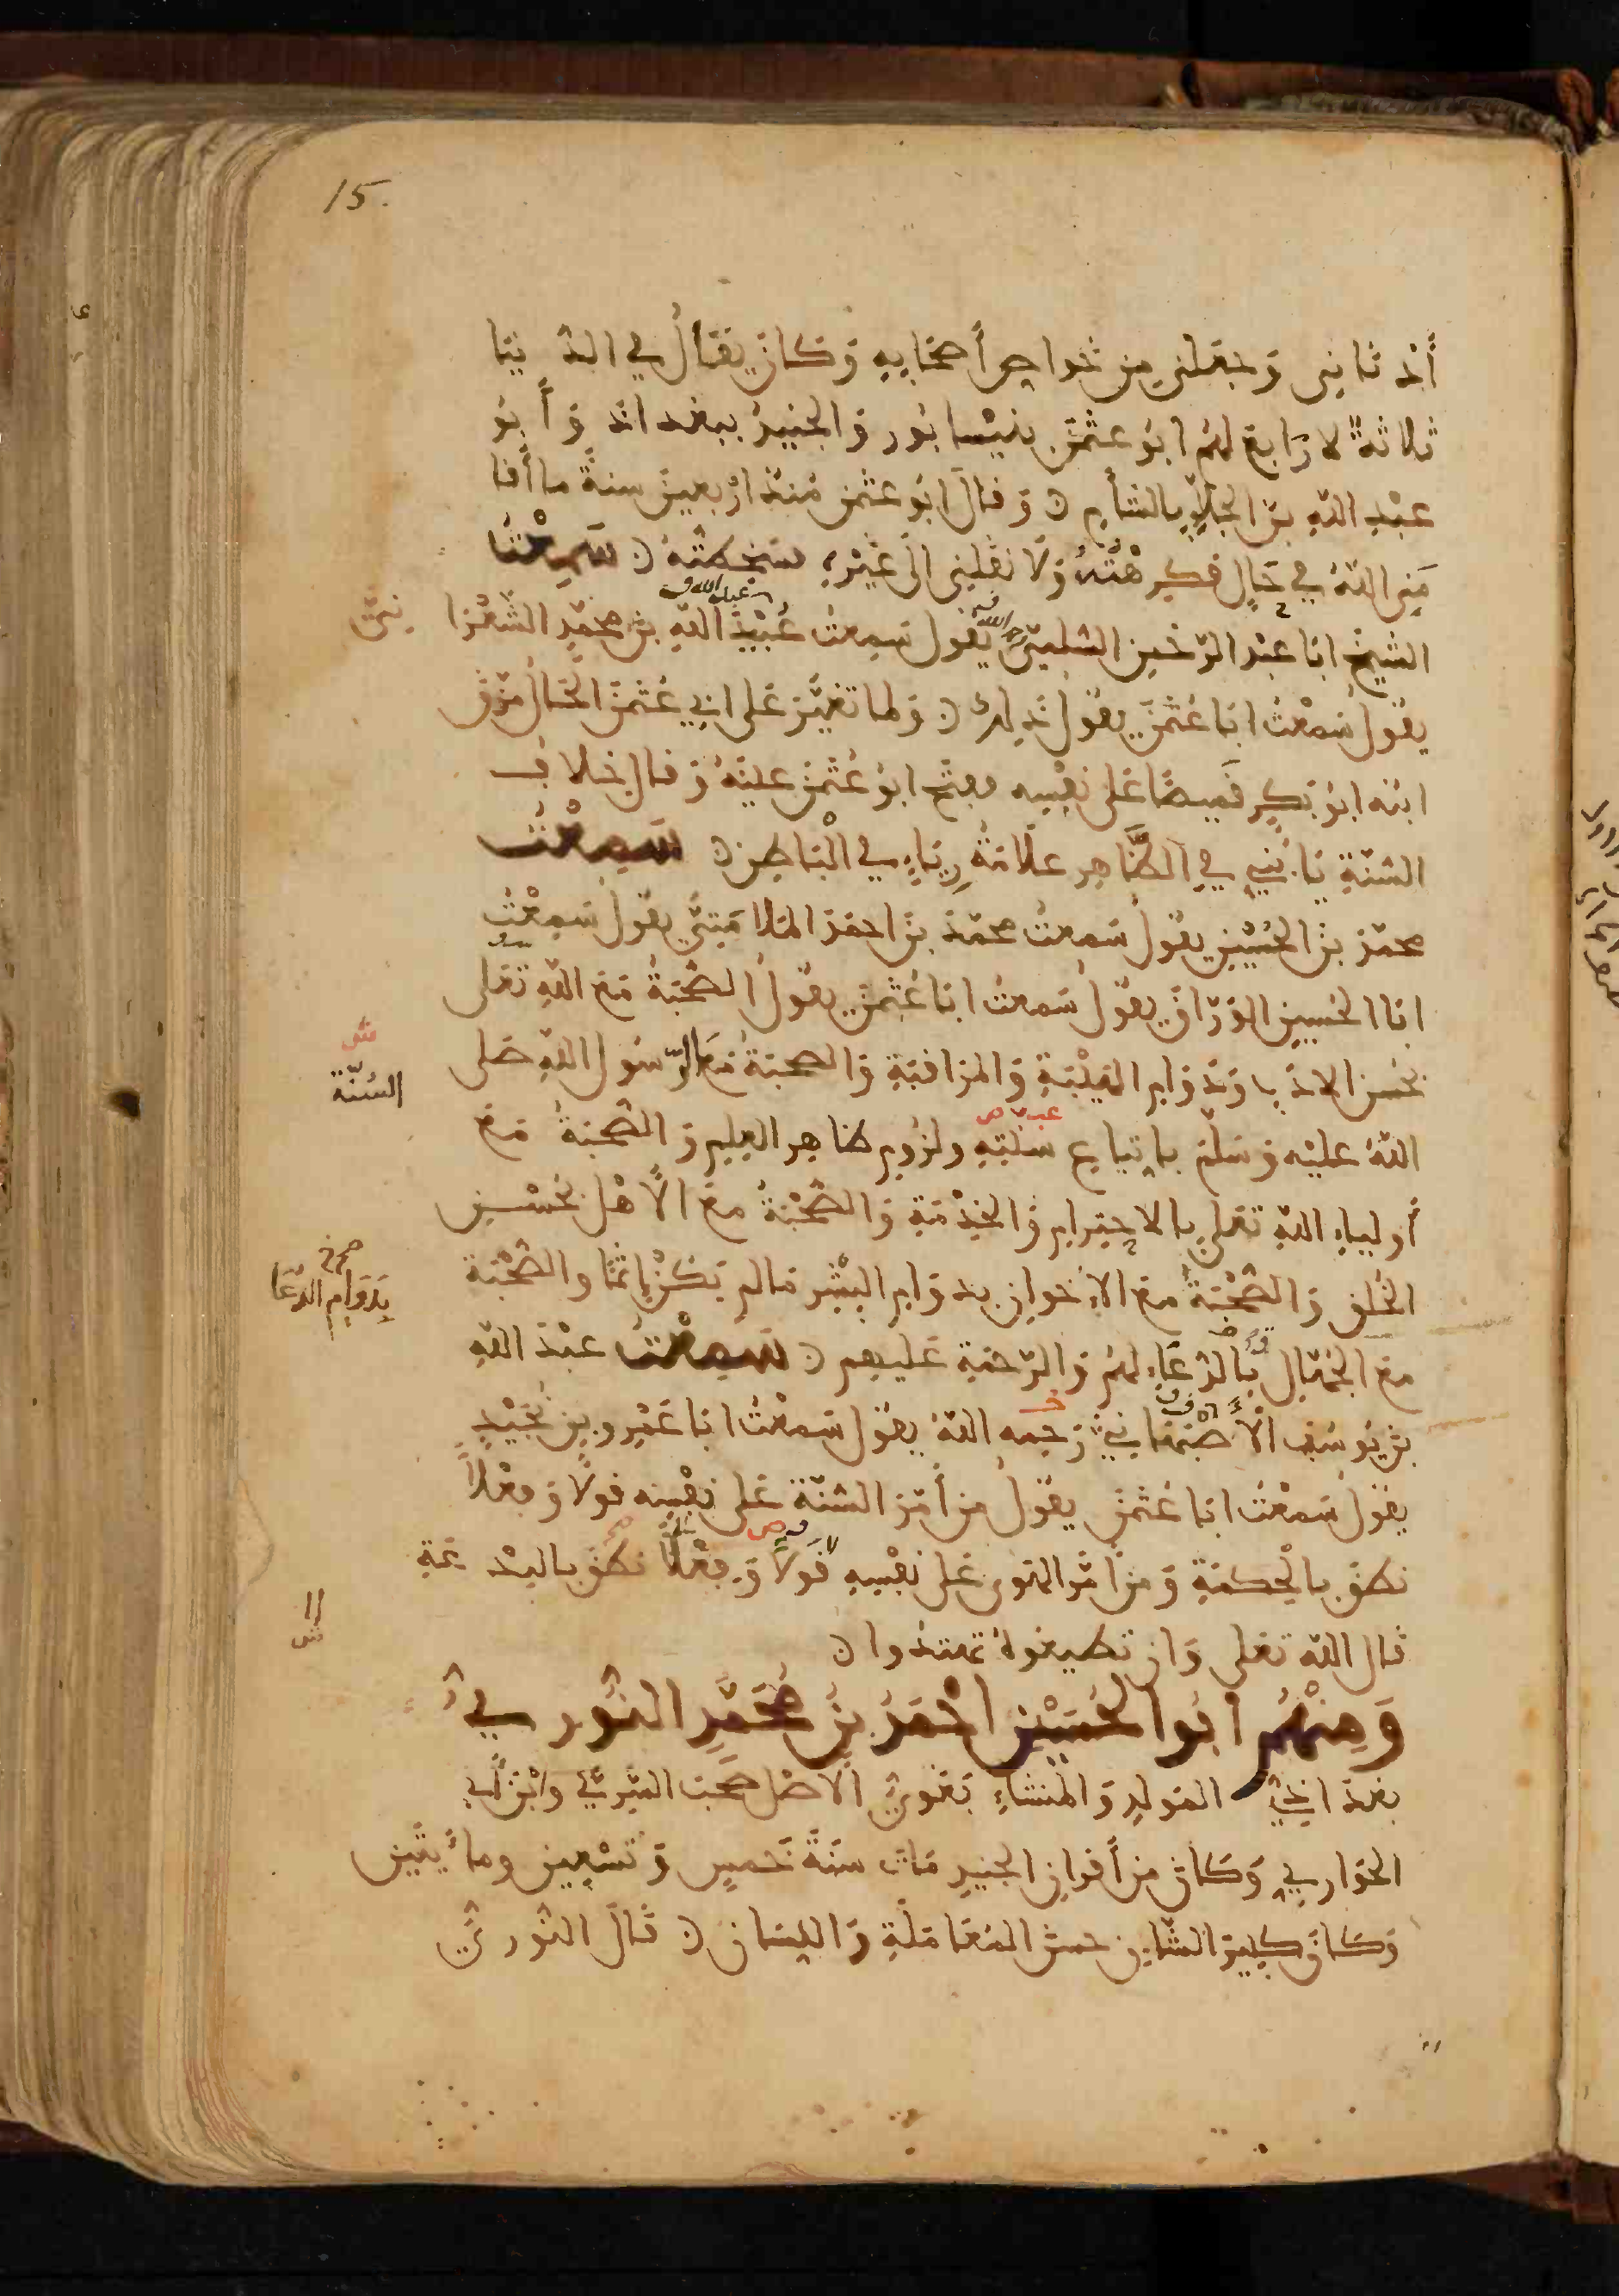 15.
أدْنانِي وَجعَلني من خواصِ أصحَابِهِ وَكَانَ يقَالُ في الدُّنيَا
ثلاثةٌ لا رَابعَ لهُم ابُو عثمٰنَ بنيْسابُور وَالجنيدُ ببغدادَ وَأبُو
عبْدِ اللهِ بنُ الجلاّءِ بالشامِ وَقالَ ابُو عثمٰن مُنذُ ارْبعينَ سنةً ما أقا
مَنِي اللهُ في حَالٍ فكرِهْتُهُ وَلَا نقلَنِي الَى غيْرِهِ فسخطتُهُ سَمِعْتُ
الشيخَ ابَا عبْد الرّحمٰن السُّلميَّ رحمه الله يقُول سَمِعتُ عُبَيْدَ اللهِ بنَ محمّدِ الشَّعْرَا
عبد الله
نيَّ
يقُول سَمعْتُ ابَا عُثمٰنَ يقُول ذٰلِكَ وَلمّا تغيَّرَ عَلى ابي عُثمٰنَ الحَالُ مزّقَ
ابنُه ابُو بَكرٍ قَميصًا عَلى نفْسِه ففتحَ ابُو عُثمٰنَ عيْنَهُ وَقال خلافُ
السُّنّةِ يَا بُنيَّ في الظَّاهِرِ علَامَةُ رِيَاءٍ في الْبَاطِنِ سَمِعْتُ
محمّدَ بنَ الحُسَيْنِ يقُولُ سَمِعتُ محمّدَ بنَ احمَدَ المَلَامَتِيَّ يقُول سَمِعْتُ
ابَا الحُسينِ الوَرّاقَ يقُولُ سَمِعتُ ابَا عُثمٰنَ يقُولُ الصُّحْبَةُ مَعَ اللهِ تعٰلى
بحُسْنِ الادَبِ وَدَوَامِ الهَيْبَةِ وَالمُرَاقبَةِ وَالصحبَةُ مَعَ الرّسُول اللهِ صَلى
السُّنّة
اللهُ عليْه وَسَلّمَ باتِباعِ سُنّتِهِ ولُزُومِ ظاهرِ العِلمِ وَالصُّحْبَةُ مَعَ
أوليَاءِ اللهِ تعٰلى بالاحْتِرامِ وَالخِدْمَةِ وَالصُّحْبَةُ معَ الْاهْلِ بحُسْنِ
الخُلقِ وَالصُّحْبَةُ معَ الاخوانِ بدوَامِ البِشْرِ مَا لم يَكُنْ إثمًا والصُّحْبَة
بِدَوَامِ الدُّعَا
معَ الجُهّالِ بالدُّعَاءِ لهُم وَالرّحمَةِ عَليهِم سَمِعْتُ عبْدَ اللهِ
بنَ يُوسُفَ الْأصْبَهَانِيَّ رَحِمه اللهُ يقُول سَمعْتُ ابَا عَمْرِو بنَ نُجَيْدٍ
يقُول سَمعْتُ ابَا عُثمٰنَ يقُولُ من أمّرَ السُّنّةَ عَلى نفْسِه قولًا وَفعْلاً
نطقَ بالحِكمَةِ وَمنْ أمّر الهَوى عَلى نفْسِهِ قَولًا وَفِعْلًا نطقَ بالبدْعَةِ
قال اللهُ تعٰلى وَان تطيعُوهُ تهتدُوا
وَمِنْهُمْ ابُو الحُسَيْنِ احْمَدُ بنُ مُحَمَّدٍ النُّورِيُّ
بغدَاذِيُّ المَولدِ وَالمنشاءِ بَغَوِيُّ الاصْل صَحبَ السَّرِيَّ وَابْنَ أبي
الحَوَارِي وَكَانَ من أقرانِ الجنيدِ مَاتَ سنَةَ خَمسٍ وَتسْعِينَ ومائتَيْنِ
وَكَانَ كبيرَ الشّانِ حسَنَ المُعَامَلَةِ وَاللِّسَانِ قَالَ النُّورِيُّ